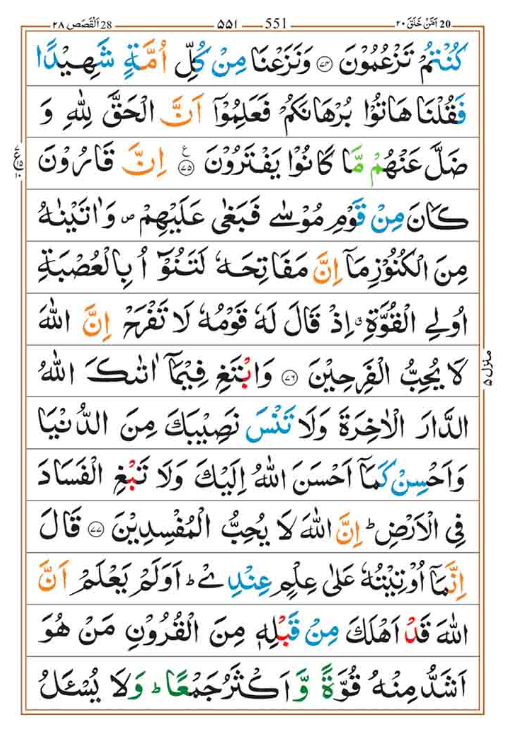 اَمَّنْ خَلَقَ ٢٠ 20 ٥٥١ 551 اَلْقَصَص ٢٨ 28
كُنْتُمْ تَزْعُمُوْنَ ﴿٧٤﴾ وَنَزَعْنَا مِنْ كُلِّ اُمَّةٍ شَهِيْدًا
فَقُلْنَا هَاتُوْا بُرْهَانَكُمْ فَعَلِمُوْٓا اَنَّ الْحَقَّ لِلّٰهِ وَ
ضَلَّ عَنْهُمْ مَّا كَانُوْا يَفْتَرُوْنَ ﴿٧٥﴾ اِنَّ قَارُوْنَ
كَانَ مِنْ قَوْمِ مُوْسٰى فَبَغٰى عَلَيْهِمْ ۪ وَاٰتَيْنٰهُ
مِنَ الْكُنُوْزِ مَآ اِنَّ مَفَاتِحَهٗ لَتَنُوْٓاُ بِالْعُصْبَةِ
اُولِى الْقُوَّةِ ۗ اِذْ قَالَ لَهٗ قَوْمُهٗ لَا تَفْرَحْ اِنَّ اللّٰهَ
لَا يُحِبُّ الْفَرِحِيْنَ ﴿٧٦﴾ وَابْتَغِ فِيْمَآ اٰتٰىكَ اللّٰهُ
الدَّارَ الْاٰخِرَةَ وَلَا تَنْسَ نَصِيْبَكَ مِنَ الدُّنْيَا
وَاَحْسِنْ كَمَآ اَحْسَنَ اللّٰهُ اِلَيْكَ وَلَا تَبْغِ الْفَسَادَ
فِى الْاَرْضِ ؕ اِنَّ اللّٰهَ لَا يُحِبُّ الْمُفْسِدِيْنَ ﴿٧٧﴾ قَالَ
اِنَّمَآ اُوْتِيْتُهٗ عَلٰى عِلْمٍ عِنْدِىْ ؕ اَوَلَمْ يَعْلَمْ اَنَّ
اللّٰهَ قَدْ اَهْلَكَ مِنْ قَبْلِهٖ مِنَ الْقُرُوْنِ مَنْ هُوَ
اَشَدُّ مِنْهُ قُوَّةً وَّاَكْثَرُ جَمْعًا ؕ وَلَا يُسْـَٔلُ
منزل ٥